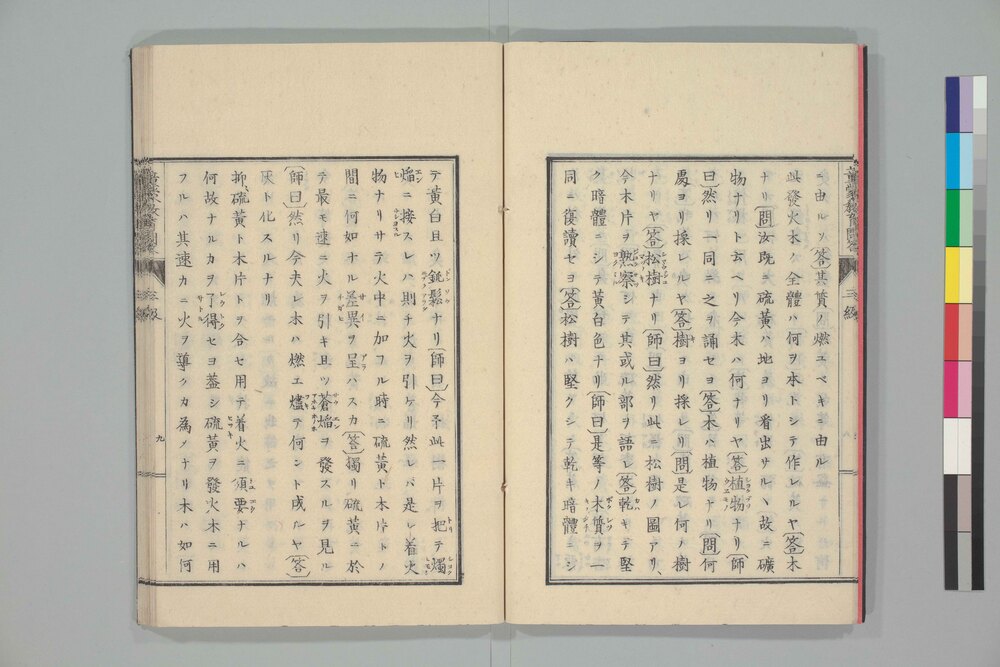 ニ由ルソ〔答〕其質ノ燃ユベキニ由ル
此發火木ノ全體ハ何ヲ本トシテ作レルヤ〔答〕木
ナリ〔問〕汝既ニ硫黄ハ地ヨリ看出サルヽ故ニ礦
物ナリト云ヘリ今木ハ何ナリヤ〔答〕植物ナリ〔師
曰〕然リ一同ニ之ヲ誦セヨ〔答〕木ハ植物ナリ〔問〕何
處ヨリ採レルヤ〔答〕樹ヨリ採レリ〔問〕是レ何ノ樹
ナリヤ〔答〕松樹ナリ〔師曰〕然リ此ニ松樹ノ圖アリ、
今木片ヲ熟察シテ其或ル部ヲ語レ〔答〕乾キテ堅
ク暗體ニシテ黄白色ナリ〔師曰〕是等ノ木質ヲ一
同ニ復讀セヨ〔答〕松樹ハ堅クシテ乾キ暗體ニシ
テ黄白且ツ鬆ナリ〔師曰〕今予此一片ヲ把テ燭
焔ニ接スレハ則チ火ヲ引ケリ然レバ是レ着火
物ナリサテ火中ニ加フル時ニ硫黄ト木片トノ
間ニ何如ナル差異ヲ呈ハスカ〔答〕獨リ硫黄ニ於
テ最モ速ニ火ヲ引キ且ツ蒼焔ヲ發スルヲ見ル
〔師曰〕然リ今夫レ木ハ燃エ燼テ何ント成ルヤ〔答〕
灰ト化スルナリ
抑、硫黄ト木片トヲ合セ用テ着火ニ須要ナルハ
何故ナルカヲ了得セヨ蓋シ硫黄ヲ發火木ニ用
フルハ其速カニ火ヲ導クカ爲メナリ木ハ如何
三級
九